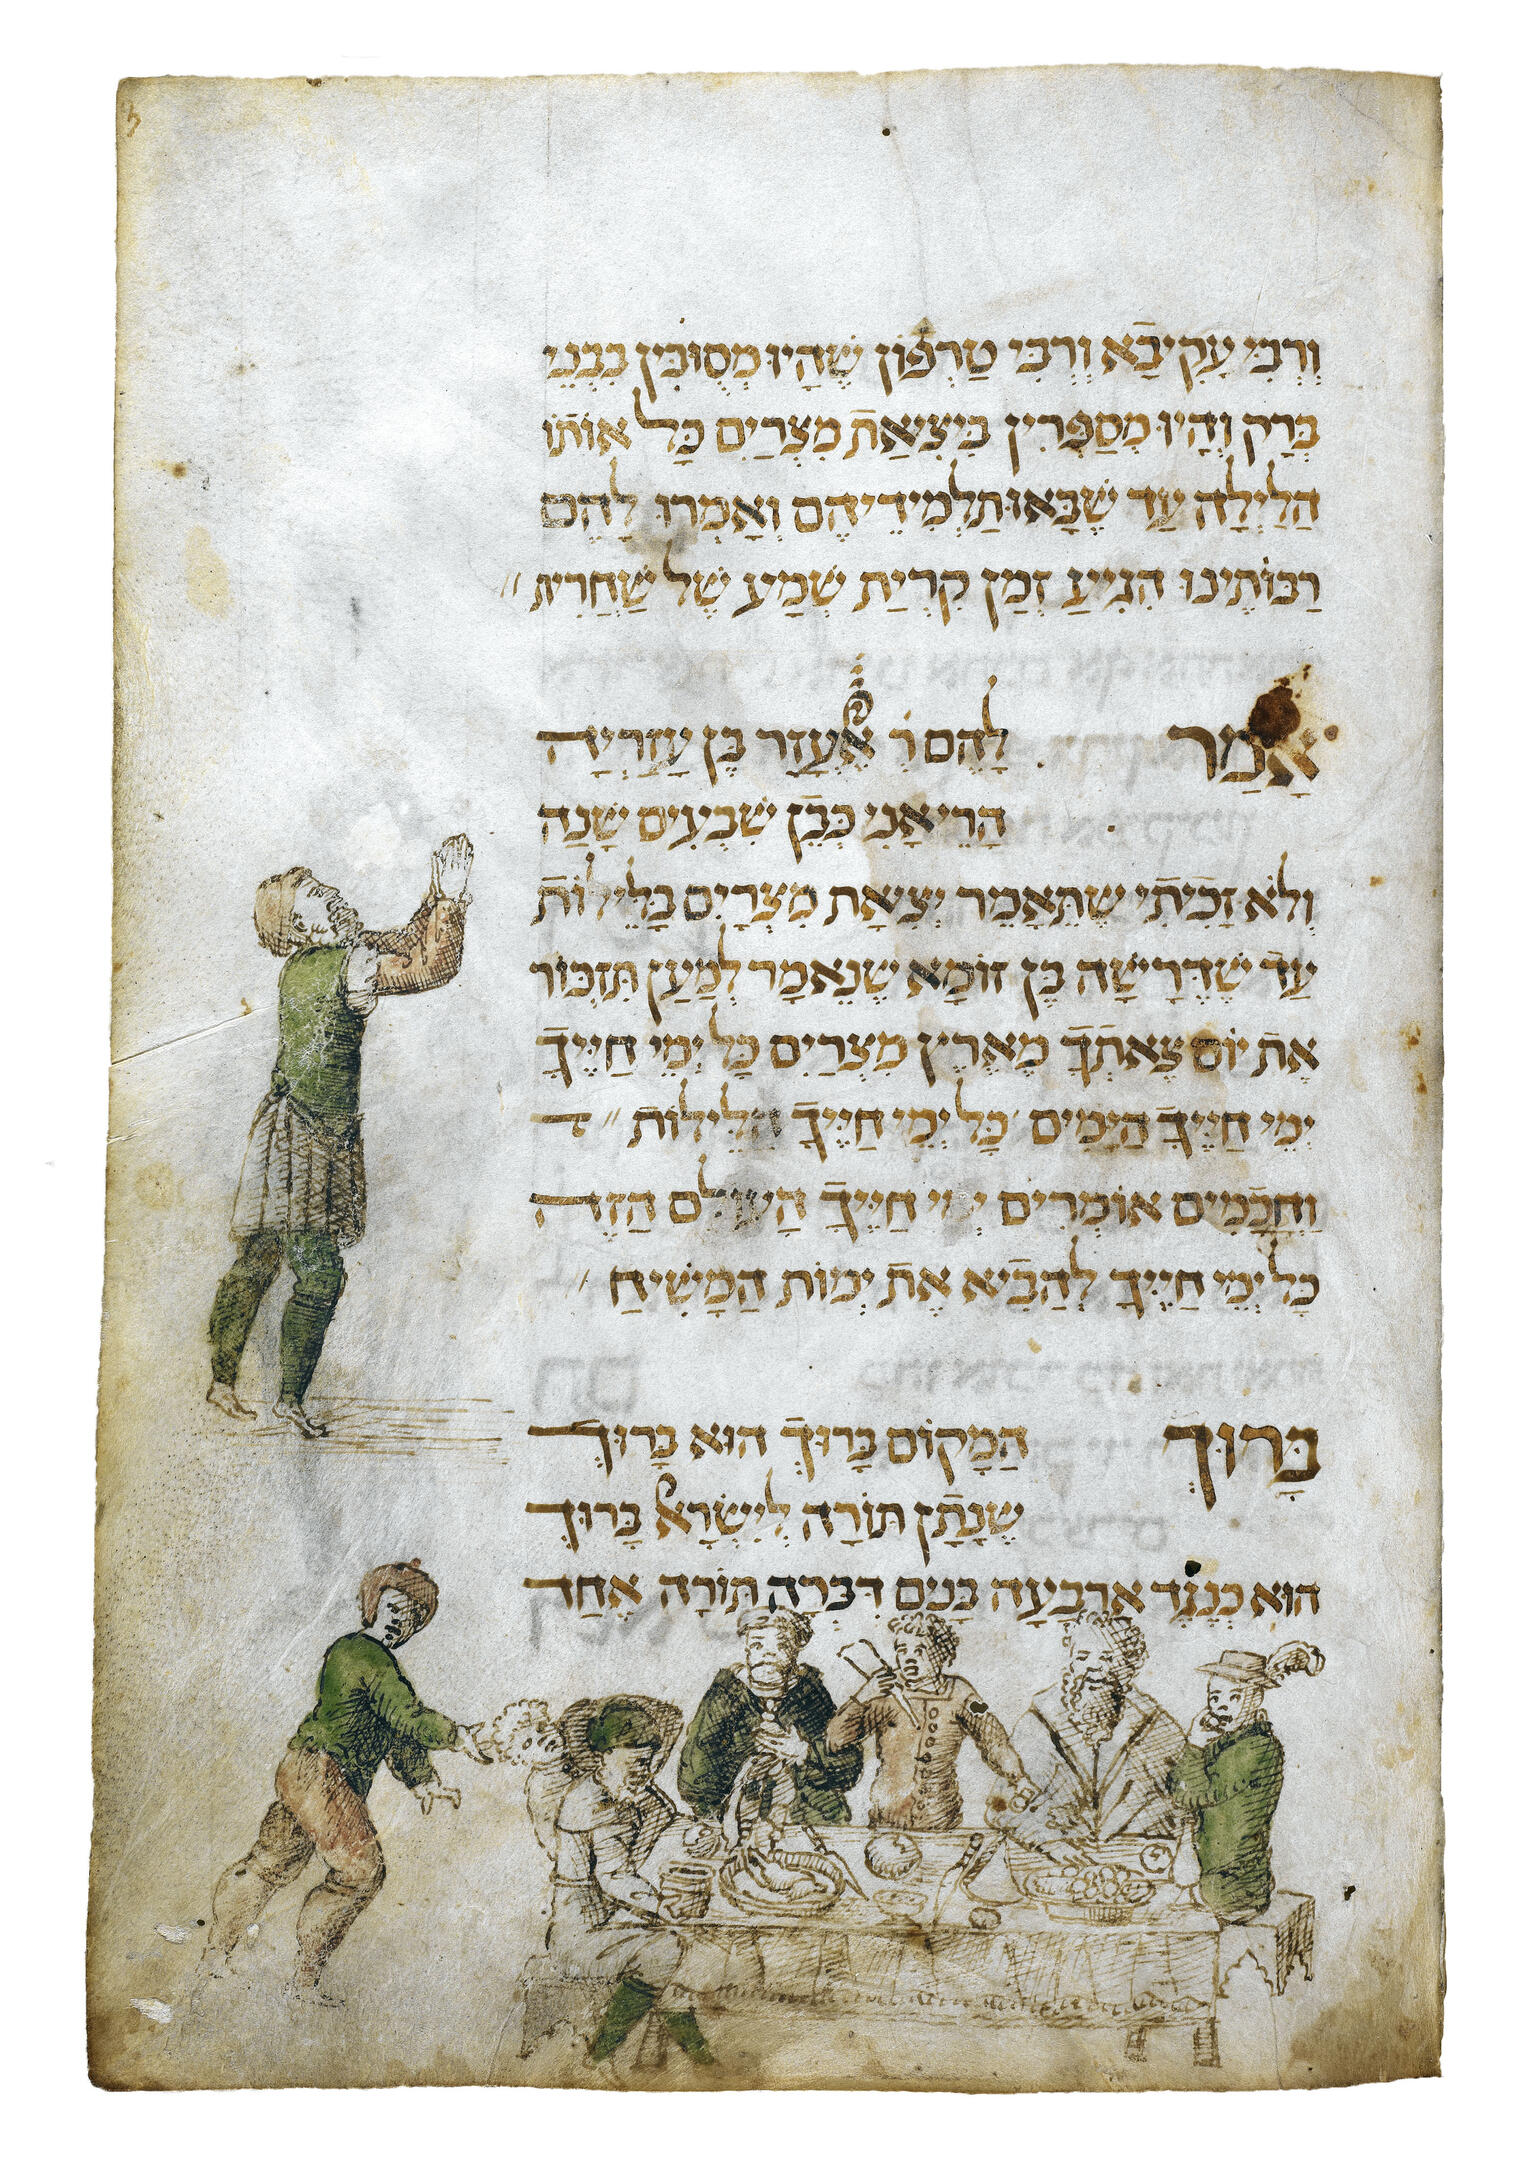 וְרִבִּי עֲקִיבָֿא וְרִבִּי טַרְפֿוֹן שֶׁהָיוּ מְסֻוּבִּין בִּבְנֵי
בְּרָק וְהָיוּ מְסַפְּרִין בִּיצִיאַתֿ מִצְרַיִם כָּל אוֹתֿוֹ
הַלַּיְלָה עַד שֶׁבָּאוּ תַלְמִידֵיהֶם וְאָמְרוּ לָהֶם
רַבּוֹתֵינוּ הִגִּיעַ זְמַן קְרִיַת שְׁמַע שֶׁל שַׁחֲרִית
אָמַר לָהֶם ר׳ אֶלְעָזָר בֶּן עֲזַרְיָה
הֲרֵי אֲנִי כְּבֶן שִׁבְעִים שָׁנָה
וְלֹא זָכִֿיתִֿי שֶׁתֵּאָמֵר יְצִיאַת מִצְרַיִם בַּלֵּילוֹתֿ
עַד שֶׁדְּרָשָׁהּ בֶּן זוֹמָא שֶׁנֶּאֱמַר לְמַעַן תִּזְכּוֹר
אֶתֿ יוֹם צֵאתְֿךָ מֵאֶרֶץ מִצְרַיִם כָּל יְמֵי חַיֶּיךָ
יְמֵי חַיֶּיךָ הַיָּמִים כָּל יְמֵי חַיֶּיךָ הַלֵּילוֹתֿ
וַחֲכָמִים אוֹמְרִים יְמֵי חַיֶּיךָ הָעוֹלָם הַזֶּה
כָּל יְמֵי חַיֶּיךָ לְהָבִֿיא אֶתֿ יְמוֹת הַמָּשִׁיחַ
בָּרוּךְ הַמָּקוֹם בָּרוּךְ הוּא בָּרוּךְ
שֶׁנָּתַֿן תּוֹרָה לְיִשְׂרָאֵל בָּרוּךְ
הוּא כְּנֶגֶד אַרְבָּעָה בָנִים דִּבְּרָה תּוֹרָה אֶחָד